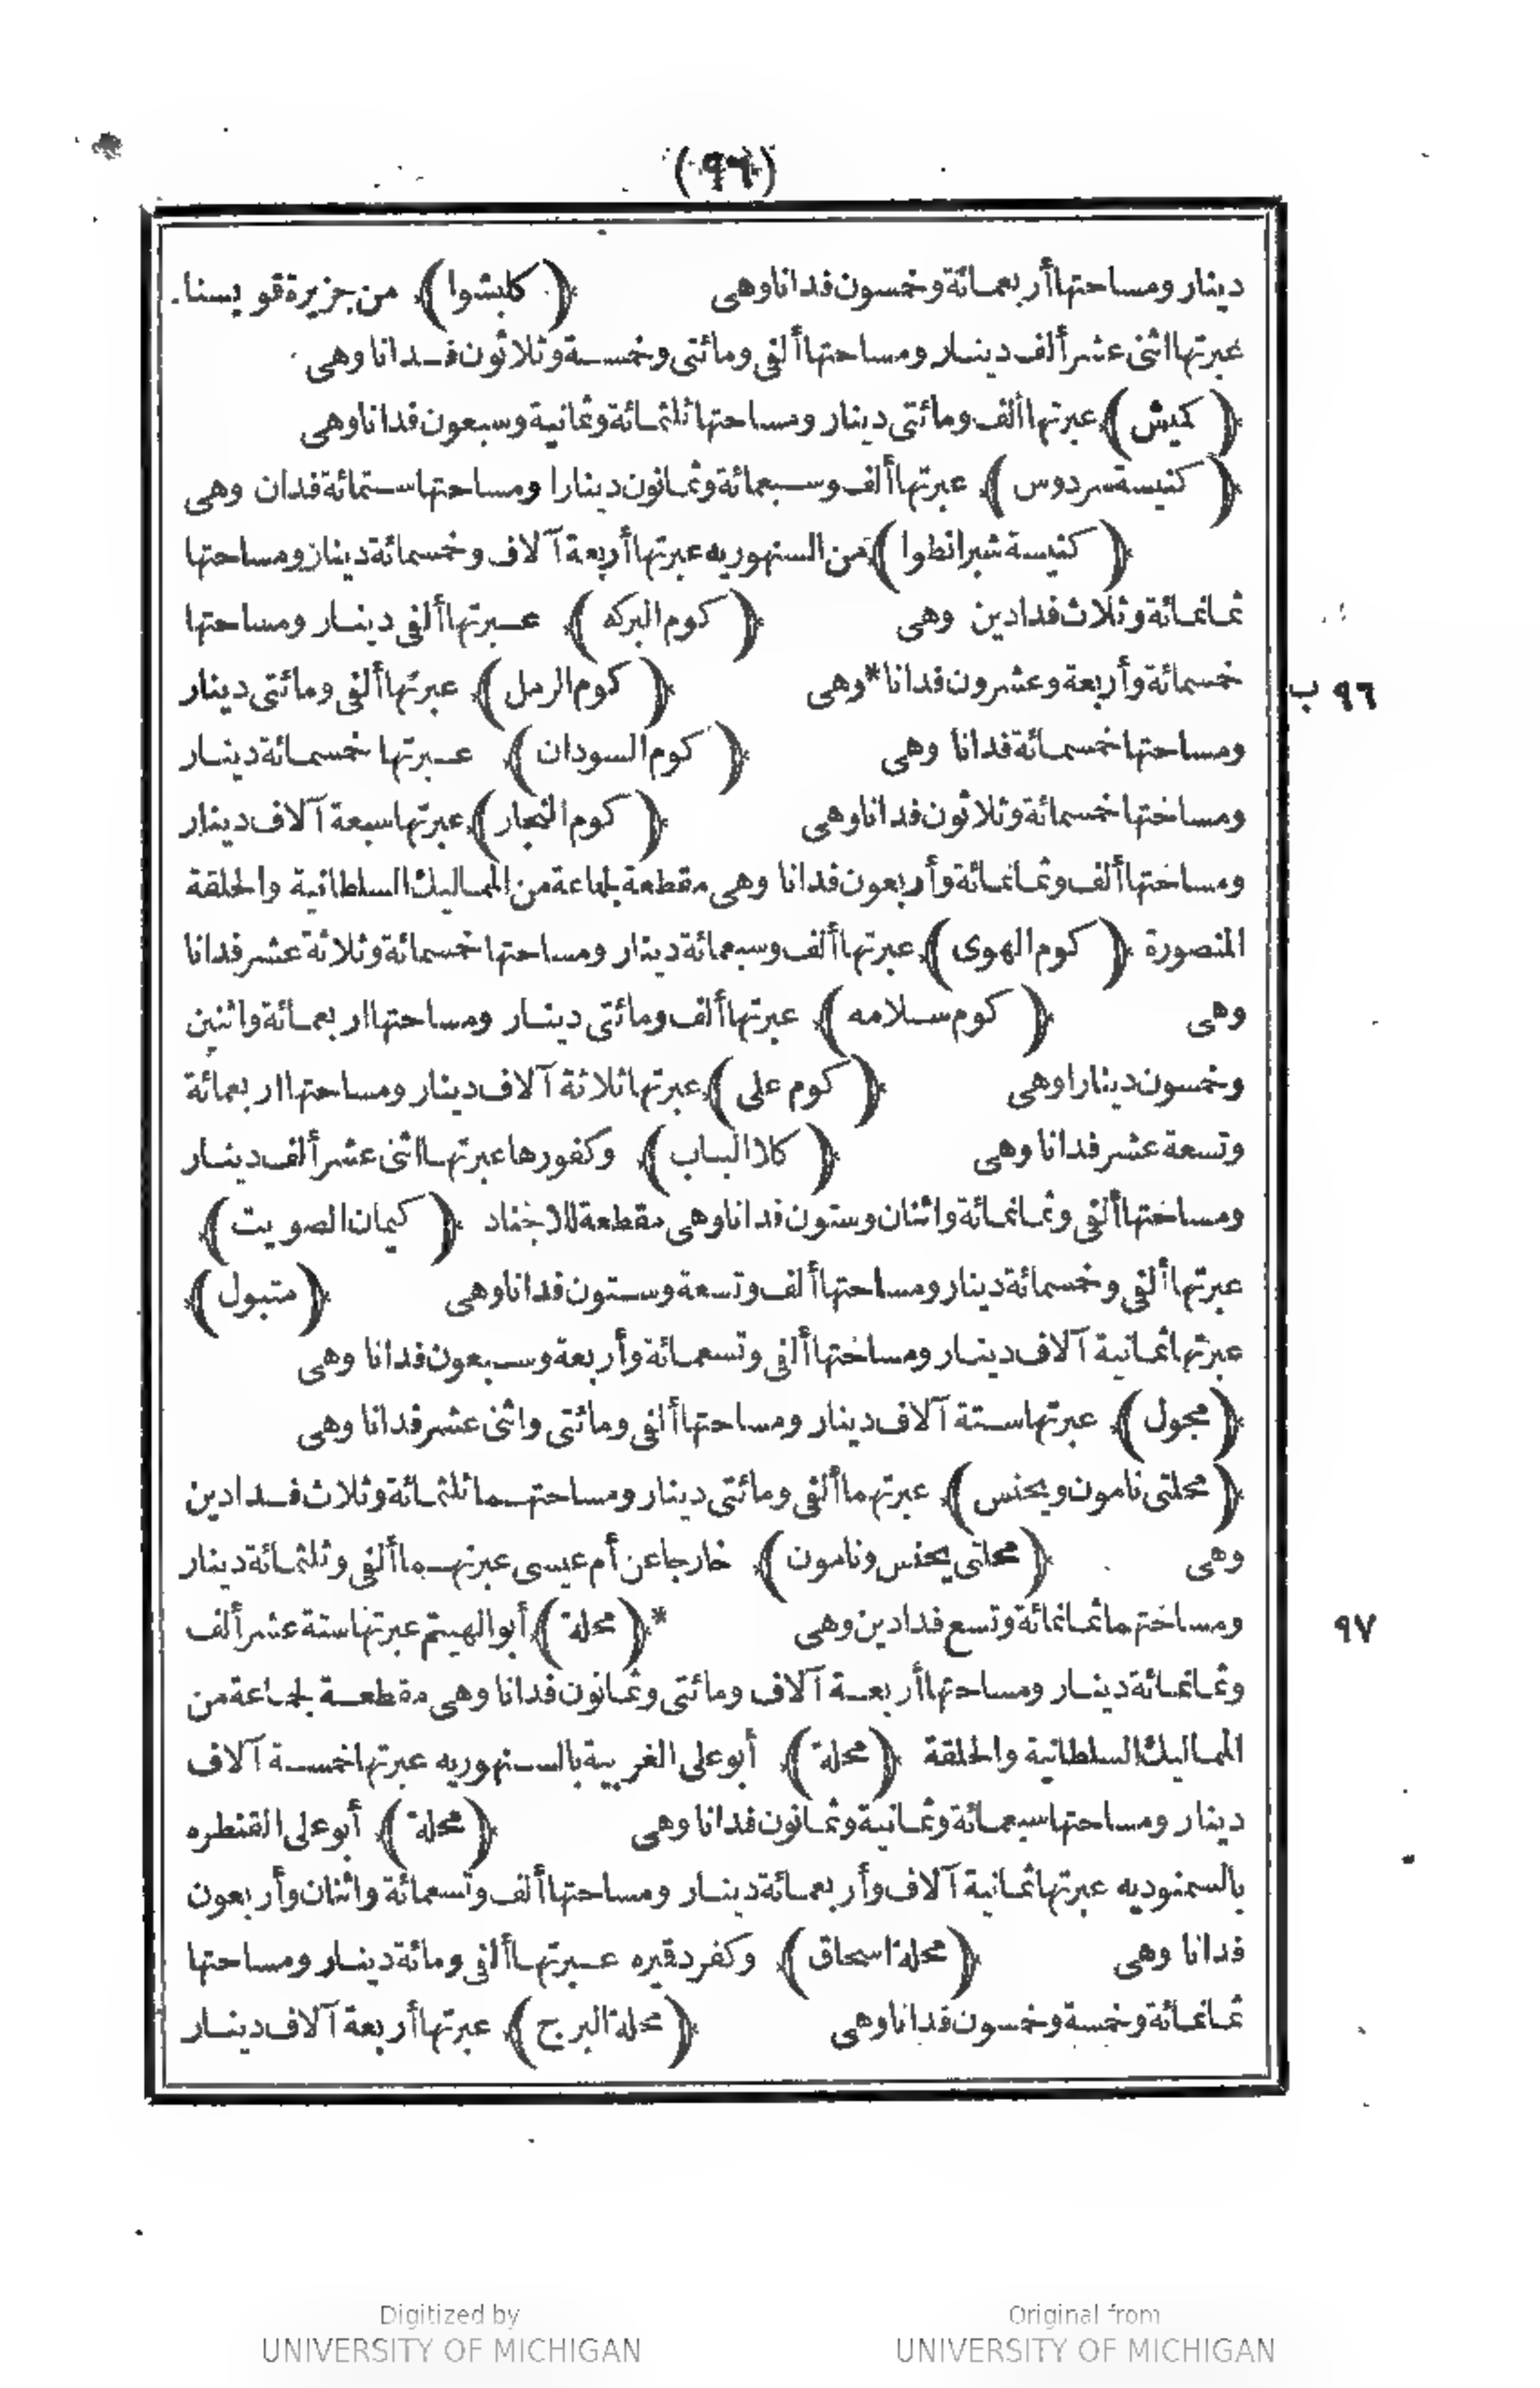 (٩٦)
دينار ومساحتها أربعمائة وخمسون فدانا وهى ﴿كلبشوا﴾ من جزيرة قويسنا
عبرتها اثنى عشر ألف دينار ومساحتها ألفى ومائتى وخمسة وثلاثون فدانا وهى
﴿كميش﴾ عبرتها ألف ومائتى دينار ومساحتها ثلثمائة وثمانية وسبعون فدانا وهى
﴿كنيسة سردوس﴾ عبرتها ألف وسبعمائة وثمانون دينارا ومساحتها ستمائة فدان وهى
﴿كنيسة شبرانطوا﴾ من السنهوريه عبرتها أربعة آلاف وخمسمائة دينار ومساحتها
ثمانمائة وثلاث فدادين وهى ﴿كوم البركه﴾ عبرتها ألفى دينار ومساحتها
خمسمائة وأربعة وعشرون فدانا * وهى ﴿كوم الرمل﴾ عبرتها ألفى ومائتى دينار
٩٦ ب
ومساحتها خمسمائة فدانا وهى ﴿كوم السودان﴾ عبرتها خمسمائة دينار
ومساحتها خمسمائة وثلاثون فدانا وهى ﴿كوم النجار﴾ عبرتها سبعة آلاف دينار
ومساحتها ألف وثمانمائة وأربعون فدانا وهى مقطعة لجماعة من المماليك السلطانية والحلقة
المنصورة ﴿كوم الهوى﴾ عبرتها ألف وسبعمائة دينار ومساحتها خمسمائة وثلاثة عشر فدانا
وهى ﴿كوم سلامه﴾ عبرتها ألف ومائتى دينار ومساحتها اربعمائة واثنين
وخمسون دينارا وهى ﴿كوم على﴾ عبرتها ثلاثة آلاف دينار ومساحتها اربعمائة
وتسعة عشر فدانا وهى ﴿كلا الباب﴾ وكفورها عبرتها اثنى عشر ألف دينار
ومساحتها ألفى وثمانمائة واثنان وستون فدانا وهى مقطعة للاجناد ﴿كيمان الصويت﴾
عبرتها ألفى وخمسمائة دينار ومساحتها ألف وتسعة وستون فدانا وهى ﴿متبول﴾
عبرتها ثمانية آلاف دينار ومساحتها ألفى وتسعمائة وأربعة وسبعون فدانا وهى
﴿مجول﴾ عبرتها ستة آلاف دينار ومساحتها ألفى ومائتى واثنى عشر فدانا وهى
﴿محلتى نامون ويحنس﴾ عبرتهما ألفى ومائتى دينار ومساحتهما ثلثمائة وثلاث فدادين
وهى ﴿محلتى يحنس ونامون﴾ خارجا عن أم عيسى عبرتهما ألفى وثلثمائة دينار
ومساحتهما ثمانمائة وتسع فدادين وهى * ﴿محلة﴾ أبو الهيتم عبرتها ستة عشر ألف
٩٧
وثمانمائة دينار ومساحتها أربعة آلاف ومائتى وثمانون فدانا وهى مقطعة لجماعة من
المماليك السلطانية والحلقة ﴿محلة﴾ أبو على الغربية بالسنهوريه عبرتها خمسة آلاف
دينار ومساحتها سبعمائة وثمانية وثمانون فدانا وهى ﴿محلة﴾ أبو على القنطره
بالسمنوديه عبرتها ثمانية آلاف وأربعمائة دينار ومساحتها ألف وتسعمائة واثنان وأربعون
فدانا وهى ﴿محلة اسحاق﴾ وكفر دقيره عبرتها ألفى ومائة دينار ومساحتها
ثمانمائة وخمسة وخمسون فدانا وهى ﴿محلة البرج﴾ عبرتها أربعة آلاف دينار
Digitized by
UNIVERSITY OF MICHIGAN
Original from
UNIVERSITY OF MICHIGAN